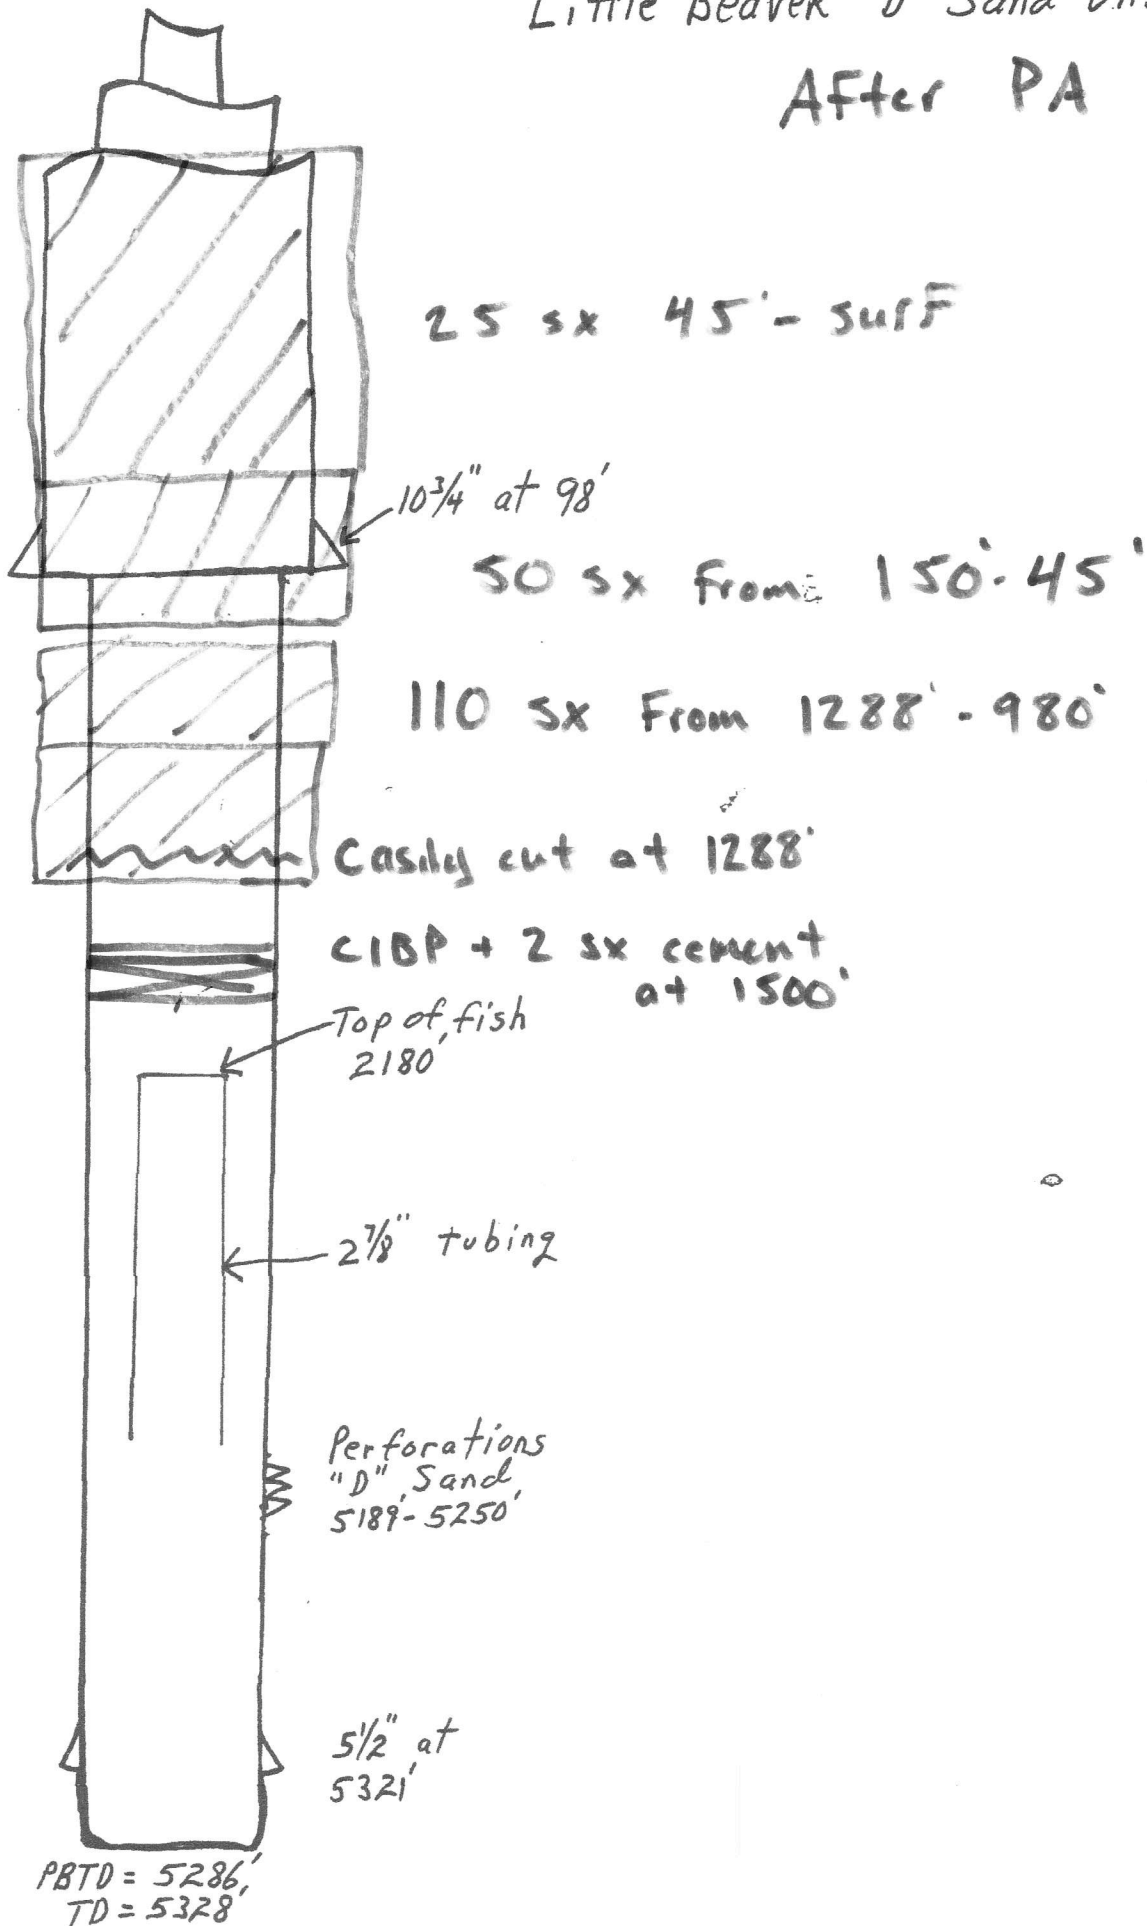 Little Beaver "D" Sand
AFter PA
25 sx 45' - surF
10 3/4" at 98'
50 sx From 150' - 45'
110 sx From 1288' - 980'
cut at 1288'
CIBP + 2 sx cement
at 1500'
Top of fish
2180'
2 7/8" tubing
Perforations
"D" Sand
5189' - 5250'
5 1/2" at
5321'
PBTD = 5286'
TD = 5328'